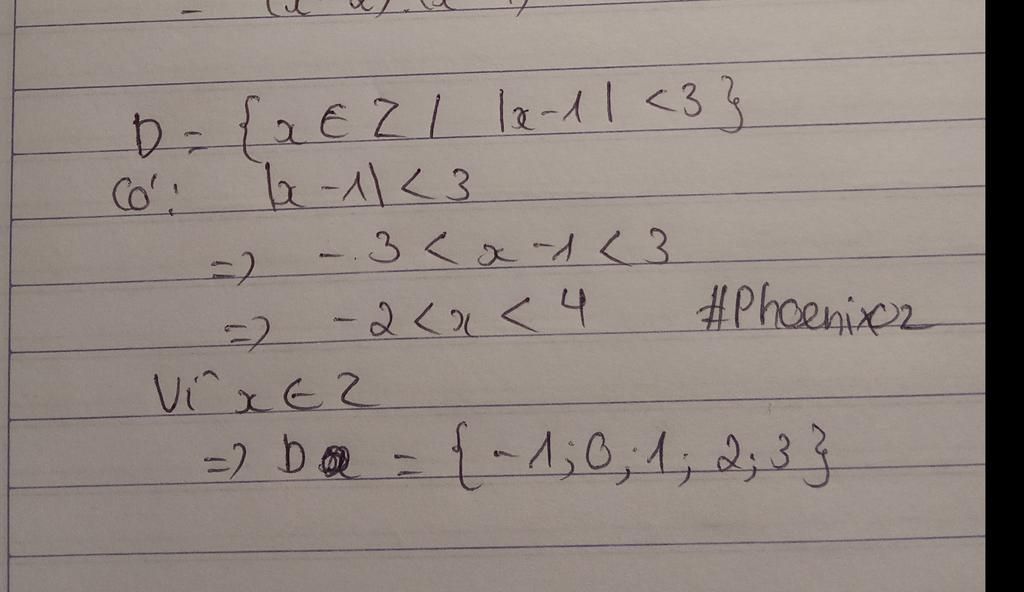 D = {x ∈ Z | |x - 1| < 3}
Có: |x - 1| < 3
=> - 3 < x - 1 < 3
=> - 2 < x < 4 #Phoenixcz
Vì x ∈ Z
=> D = {-1; 0; 1; 2; 3}